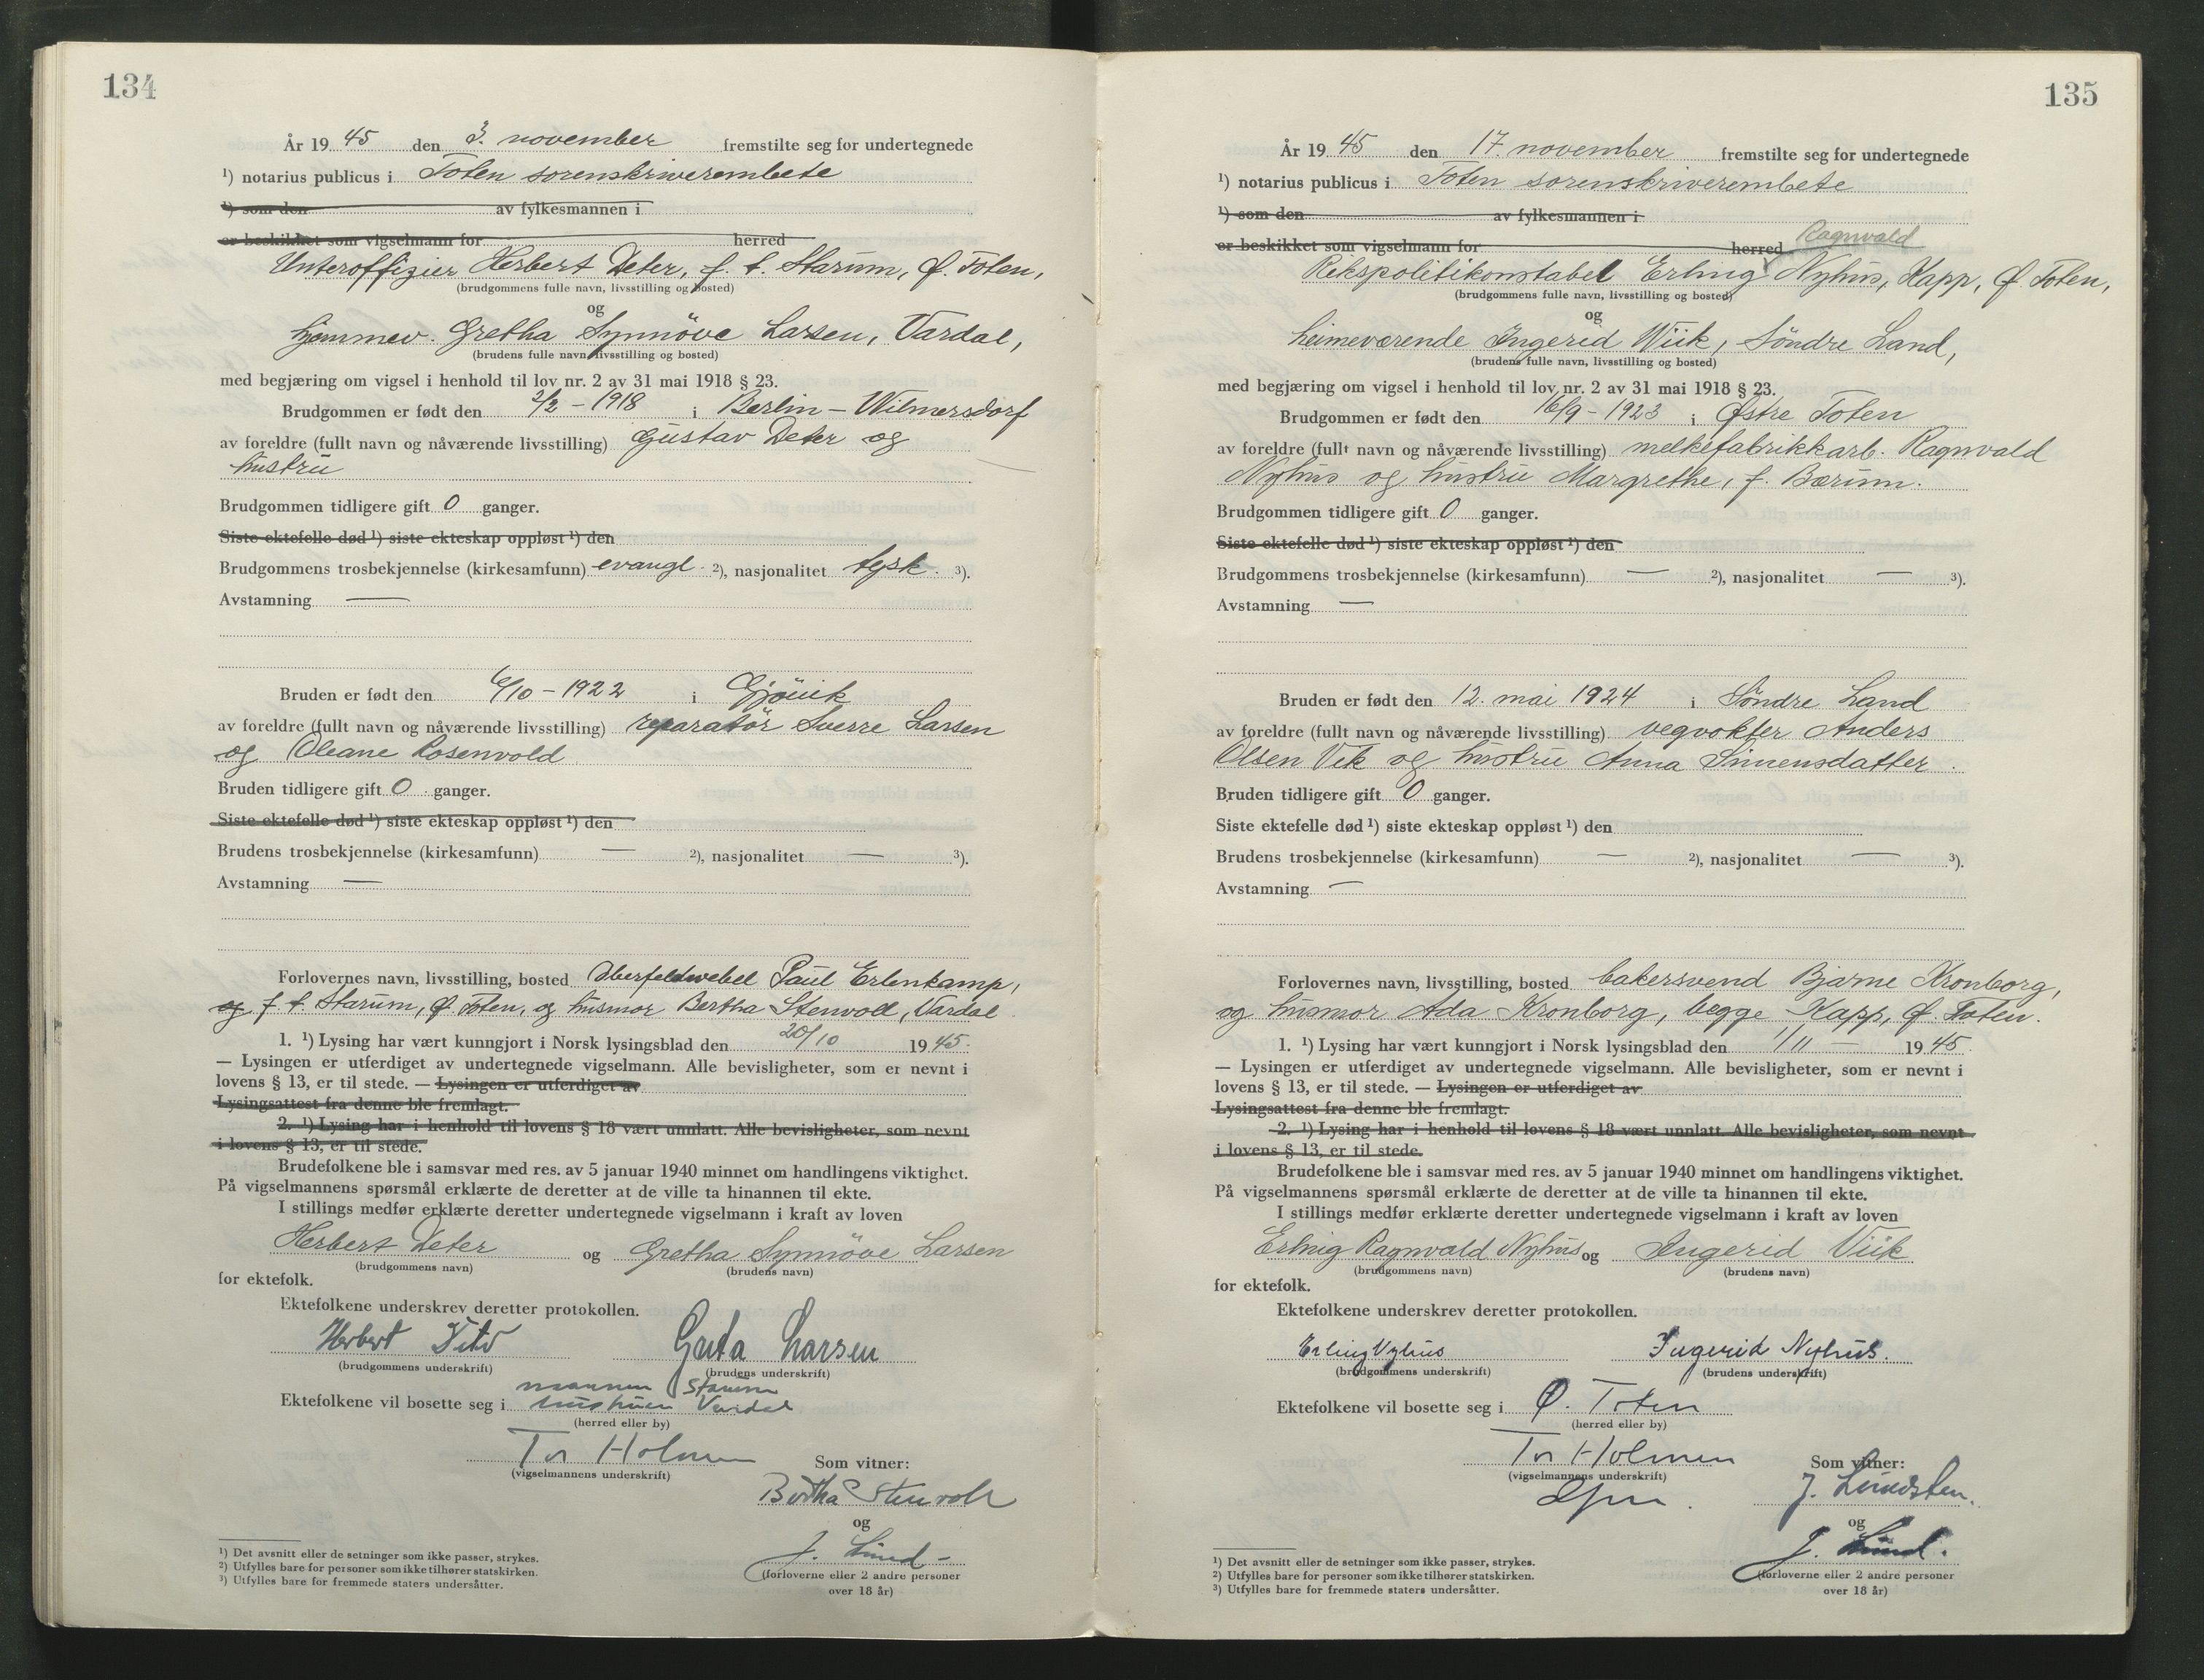 134
År 19 45 den 3. november fremstilte seg for undertegnede
¹) notarius publicus i Toten sorenskriverembete
¹) som den av fylkesmannen i
er beskikket som vigselmann for herred
Unteroffizier Herbert Deter, f. t. Starum, Ø. Toten,
(brudgommens fulle navn, livsstilling og bosted)
og
hjemmev. Gretha Synnöve Larsen, Vardal,
(brudens fulle navn, livsstilling og bosted)
med begjæring om vigsel i henhold til lov nr. 2 av 31 mai 1918 § 23.
Brudgommen er født den 2/2 - 1918 i Berlin - Wilmersdorf
av foreldre (fullt navn og nåværende livsstilling) Gustav Deter og
hustru
Brudgommen tidligere gift 0 ganger.
Siste ektefelle død ¹) siste ekteskap oppløst ¹) den
Brudgommens trosbekjennelse (kirkesamfunn) evangl. ²), nasjonalitet tysk. ³).
Avstamning —
Bruden er født den 6/10 - 1922 i Gjövik
av foreldre (fullt navn og nåværende livsstilling) reparatör Sverre Larsen
og Oleane Rosenvold
Bruden tidligere gift 0 ganger.
Siste ektefelle død ¹) siste ekteskap oppløst ¹) den
Brudens trosbekjennelse (kirkesamfunn) — ²), nasjonalitet — ³).
Avstamning —
Forlovernes navn, livsstilling, bosted Oberfeldwebel Paul Erlenkamp,
og f. t. Starum, Ø. Toten, og husmor Bertha Stenvold, Vardal
1. ¹) Lysing har vært kunngjort i Norsk lysingsblad den 20/10 19 45.
— Lysingen er utferdiget av undertegnede vigselmann. Alle bevisligheter, som er nevnt i
lovens § 13, er til stede. — Lysingen er utferdiget av
Lysingsattest fra denne ble fremlagt.
2. ¹) Lysing har i henhold til lovens § 18 vært unnlatt. Alle bevisligheter, som nevnt
i lovens § 13, er til stede.
Brudefolkene ble i samsvar med res. av 5 januar 1940 minnet om handlingens viktighet.
På vigselmannens spørsmål erklærte de deretter at de ville ta hinannen til ekte.
I stillings medfør erklærte deretter undertegnede vigselmann i kraft av loven
Herbert Deter og Gretha Synnöve Larsen
(brudgommens navn) (brudens navn)
for ektefolk.
Ektefolkene underskrev deretter protokollen.
Herbert Deter Greta Larsen
(brudgommens underskrift) (brudens underskrift)
mannen Starum
Ektefolkene vil bosette seg i hustruen Vardal
(herred eller by)
Tor Holmen Som vitner:
(vigselmannens underskrift)
Bertha Stenvold
og
J. Lund
(forloverne eller 2 andre personer
over 18 år)
¹) Det avsnitt eller de setninger som ikke passer, strykes.
²) Utfylles bare for personer som ikke tilhører statskirken.
³) Utfylles bare for fremmede staters undersåtter.
135
År 19 45 den 17. november fremstilte seg for undertegnede
¹) notarius publicus i Toten sorenskriverembete
¹) som den av fylkesmannen i
er beskikket som vigselmann for herred
Ragnvald
Rikspolitikonstabel Erling Nyhus, Kapp, Ø. Toten,
(brudgommens fulle navn, livsstilling og bosted)
og
heimeværende Ingerid Wiik, Söndre Land,
(brudens fulle navn, livsstilling og bosted)
med begjæring om vigsel i henhold til lov nr. 2 av 31 mai 1918 § 23.
Brudgommen er født den 16/9 - 1923 i Østre Toten
av foreldre (fullt navn og nåværende livsstilling) melkefabrikkarb. Ragnvald
Nyhus og hustru Margrethe, f. Bærum.
Brudgommen tidligere gift 0 ganger.
Siste ektefelle død ¹) siste ekteskap oppløst ¹) den
Brudgommens trosbekjennelse (kirkesamfunn) — ²), nasjonalitet — ³).
Avstamning —
Bruden er født den 12. mai 1924 i Söndre Land
av foreldre (fullt navn og nåværende livsstilling) vegvokter Anders
Olsen Vik og hustru Anna Simensdatter.
Bruden tidligere gift 0 ganger.
Siste ektefelle død ¹) siste ekteskap oppløst ¹) den
Brudens trosbekjennelse (kirkesamfunn) — ²), nasjonalitet — ³).
Avstamning —
Forlovernes navn, livsstilling, bosted bakersvend Bjarne Kronborg,
og husmor Ada Kronborg, begge Kapp, Ø. Toten.
1. ¹) Lysing har vært kunngjort i Norsk lysingsblad den 1/11 — 19 45
— Lysingen er utferdiget av undertegnede vigselmann. Alle bevisligheter, som er nevnt i
lovens § 13, er til stede. — Lysingen er utferdiget av
Lysingsattest fra denne ble fremlagt.
2. ¹) Lysing har i henhold til lovens § 18 vært unnlatt. Alle bevisligheter, som nevnt
i lovens § 13, er til stede.
Brudefolkene ble i samsvar med res. av 5 januar 1940 minnet om handlingens viktighet.
På vigselmannens spørsmål erklærte de deretter at de ville ta hinannen til ekte.
I stillings medfør erklærte deretter undertegnede vigselmann i kraft av loven
Erling Ragnvald Nyhus og Ingerid Viik
(brudgommens navn) (brudens navn)
for ektefolk.
Ektefolkene underskrev deretter protokollen.
Erling Nyhus Ingerid Nyhus.
(brudgommens underskrift) (brudens underskrift)
Ektefolkene vil bosette seg i Ø. Toten
(herred eller by)
Tor Holmen Som vitner:
(vigselmannens underskrift)
J. Lundsten.
og
J. Lund.
(forloverne eller 2 andre personer
over 18 år)
¹) Det avsnitt eller de setninger som ikke passer, strykes.
²) Utfylles bare for personer som ikke tilhører statskirken.
³) Utfylles bare for fremmede staters undersåtter.